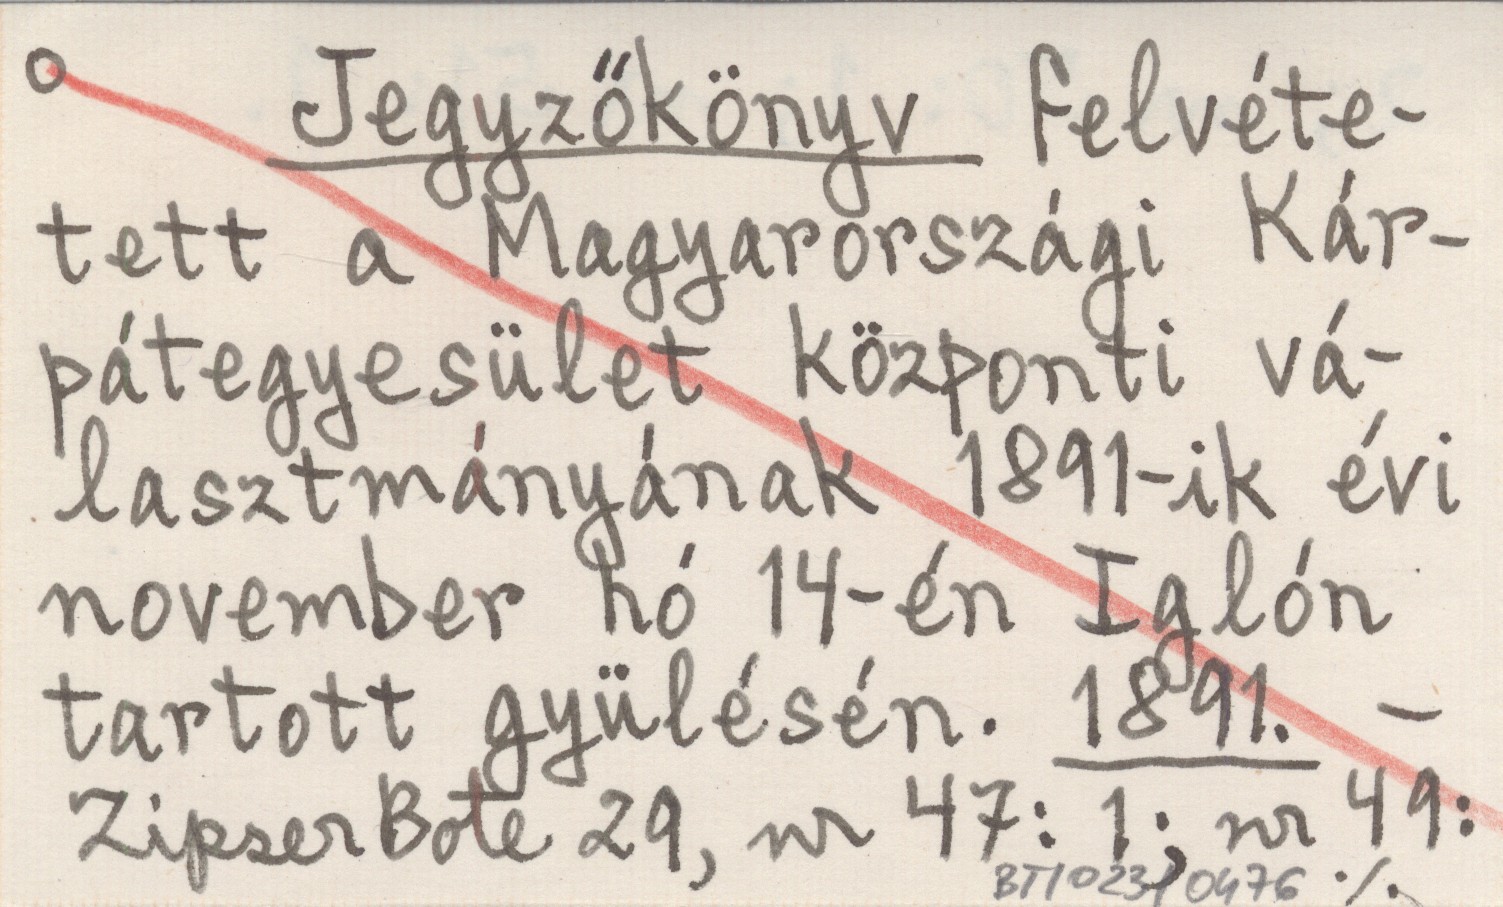 Jegyzőkönyv felvéte-
tett a Magyarországi Kár-
pátegyesület központi vá-
lasztmányának 1891-ik évi
november hó 14-én Iglón
tartott gyülésén. 1891. –
Zipser Bote 29, nr 47: 1; nr 49:
BTI 023/0476 ./.